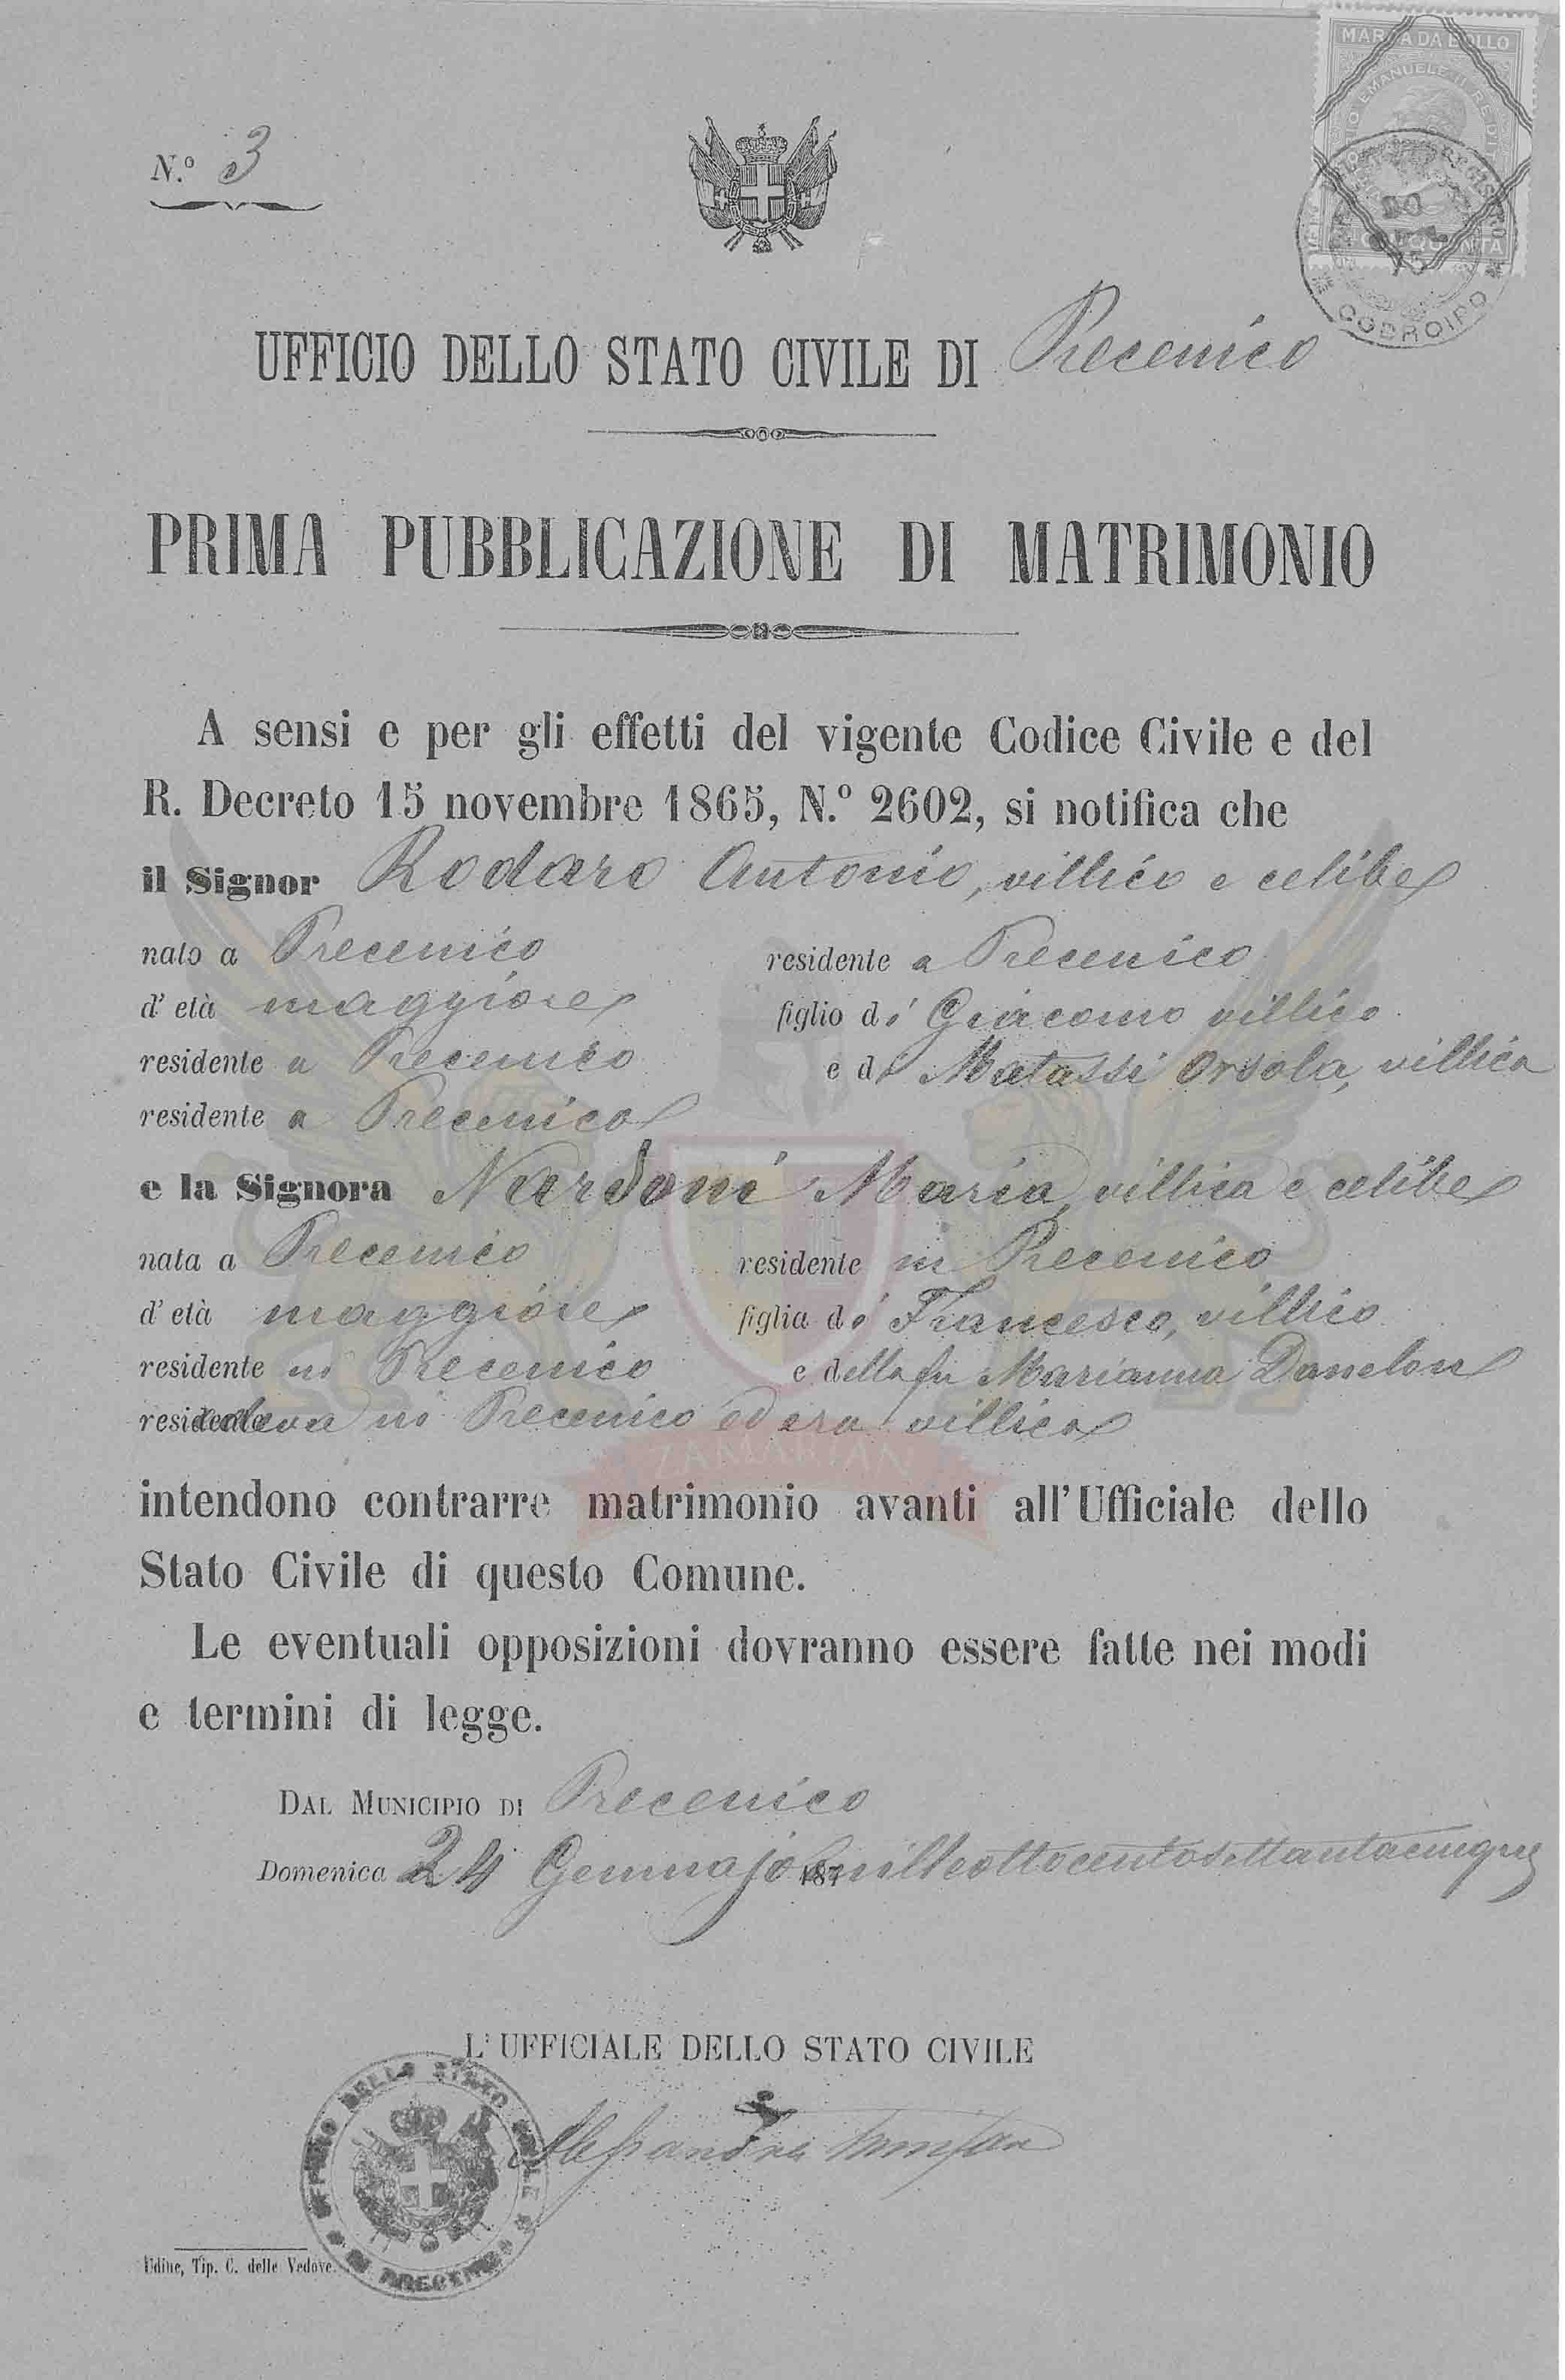 MARCA DA BOLLO
EMANUELE II RE D'IT
CINQUANTA
CODROIPO
N.º 3
UFFICIO DELLO STATO CIVILE DI Precenico
PRIMA PUBBLICAZIONE DI MATRIMONIO
A sensi e per gli effetti del vigente Codice Civile e del
R. Decreto 15 novembre 1865, N.º 2602, si notifica che
il Signor Rodaro Antonio, villico e celibe
nato a Precenico residente a Precenico
d' età maggiore figlio di Giacomo villico
residente a Precenico e di Matassi Orsola, villica
residente a Precenico
e la Signora Nardoni Maria, villica e celibe
nata a Precenico residente in Precenico
d' età maggiore figlia di Francesco, villico
residente in Precenico e della fu Marianna Danelon
residente in Precenico ed era villica
ZAMARIAN
intendono contrarre matrimonio avanti all'Ufficiale dello
Stato Civile di questo Comune.
Le eventuali opposizioni dovranno essere fatte nei modi
e termini di legge.
DAL MUNICIPIO DI Precenico
Domenica 24 Gennajo 187 milleottocentosettantacinque
L'UFFICIALE DELLO STATO CIVILE
UFFICIO DELLO STATO CIVILE
Alessandro
Udine, Tip. C. delle Vedove.